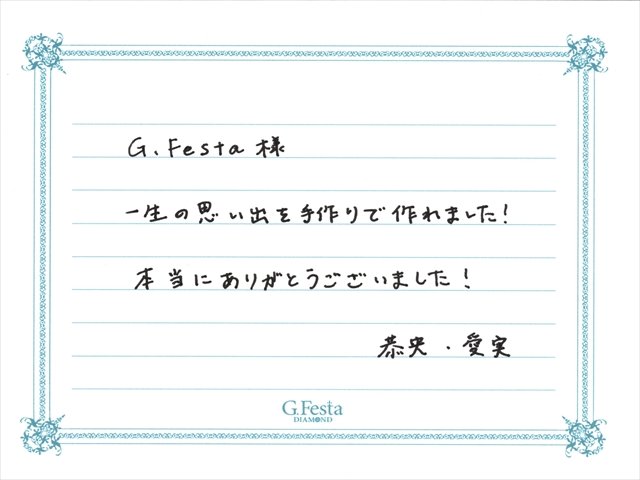 G.Festa様
一生の思い出を手作りで作れました！
本当にありがとうございました！
恭央・愛実
G.Festa
DIAMOND